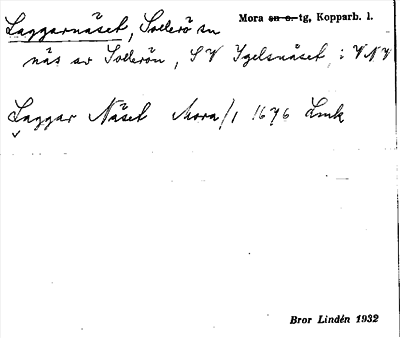 Laggarnäset, Sollerö sn Mora sn o. tg, Kopparb. l.
näs av Sollerön, SV Igelsnäset, i VNV
Laggar Näset Mora/1 1676 Lmk
Bror Lindén 1932